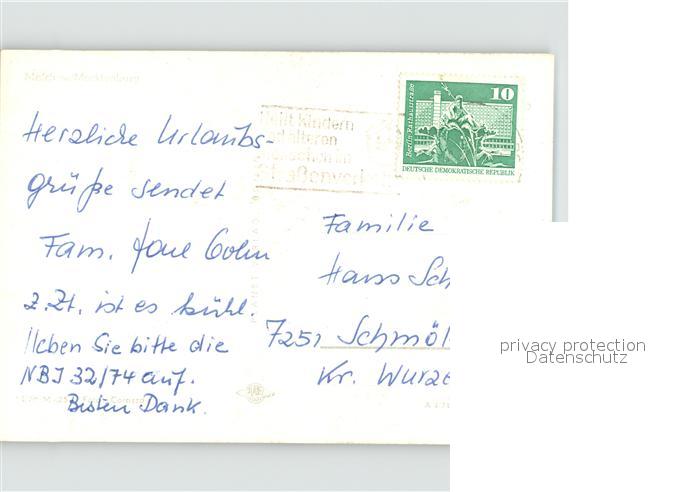 Malchow/Mecklenburg
Helft Kindern
und älteren
Menschen im
Straßenverkehr
10
Berlin-Rathausstraße
DEUTSCHE DEMOKRATISCHE REPUBLIK
Herzliche Urlaubs-
grüße sendet
Fam.
z. Zt. ist es kühl.
Heben Sie bitte die
NBI 32/74 auf.
Besten Dank.
PLANET-VERLAG
Familie
Hans Sch
7251 Schmöl
Kr. Wurze
privacy protection
Datenschutz